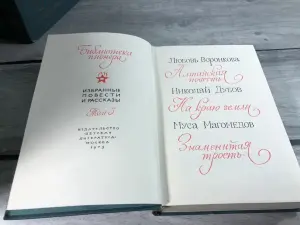 Библиотека
пионера
ИЗБРАННЫЕ
ПОВЕСТИ
И РАССКАЗЫ
Том 5
ИЗДАТЕЛЬСТВО
ДЕТСКАЯ
ЛИТЕРАТУРА
МОСКВА
1972
Любовь Воронкова
Алтайская
повесть
Николай Дубов
На краю земли
Муса Магомедов
Знаменитая
трость